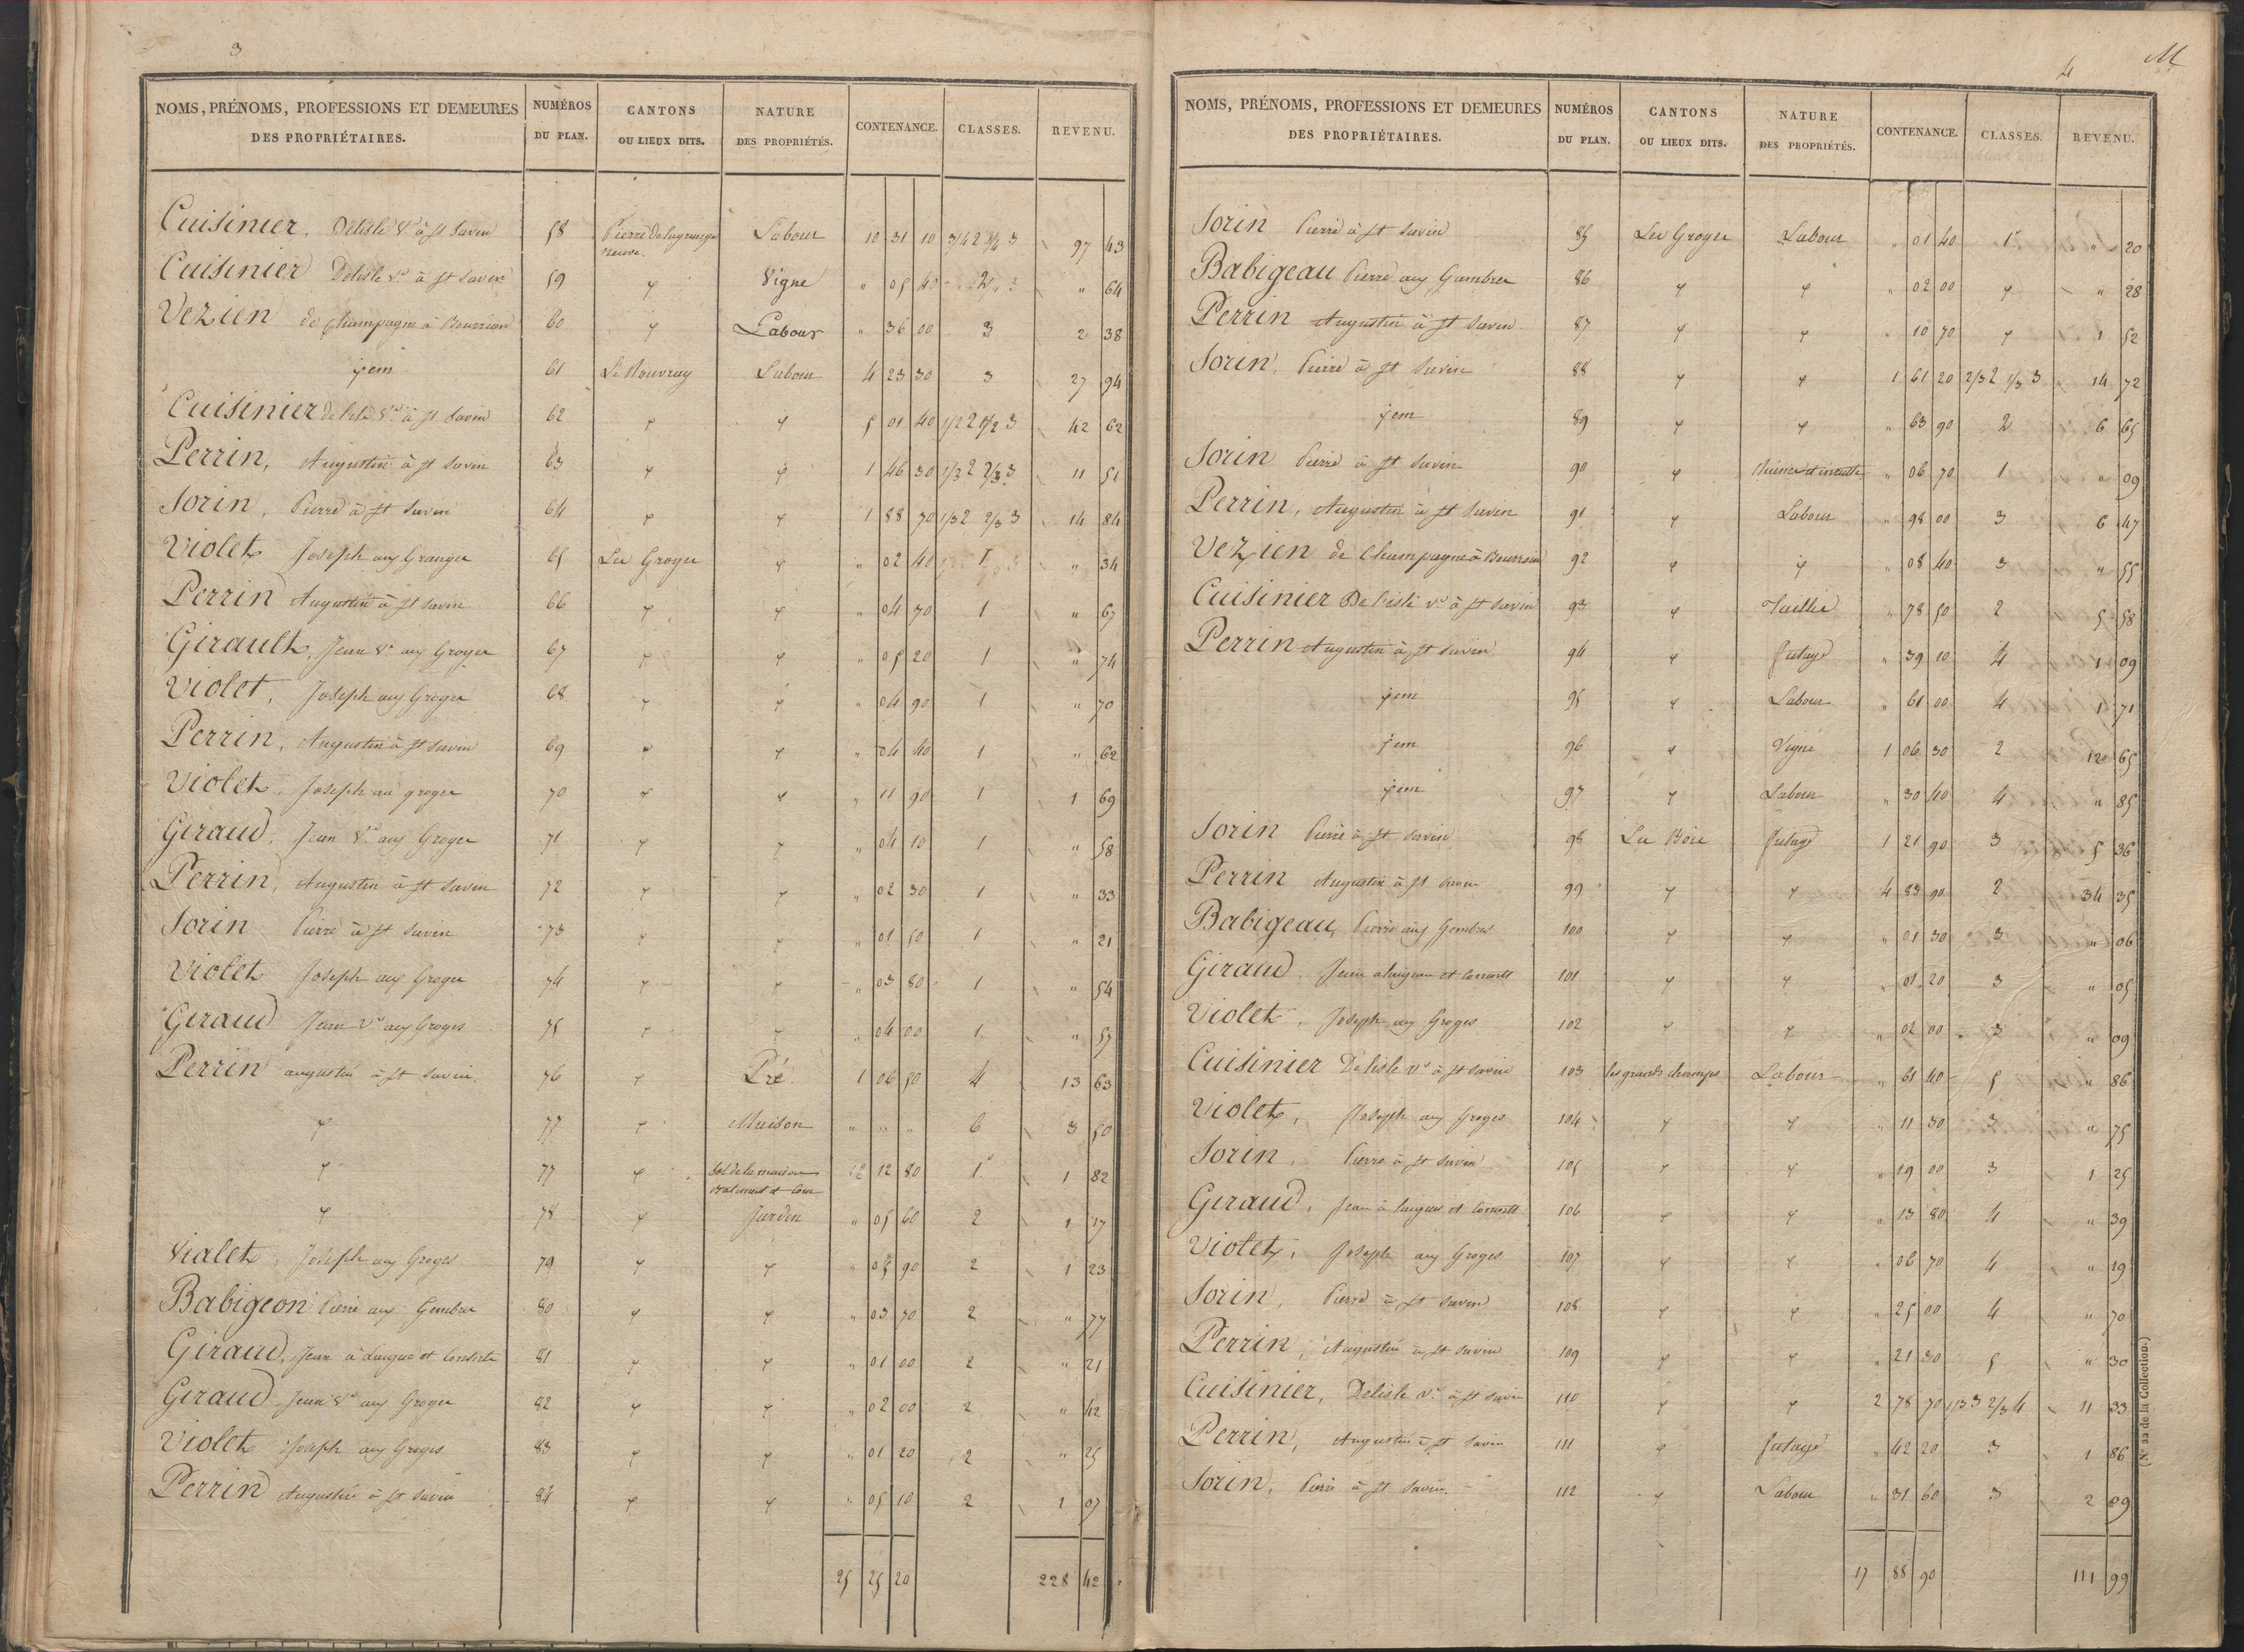 3
NOMS, PRÉNOMS, PROFESSIONS ET DEMEURES DES PROPRIÉTAIRES. NUMÉROS DU PLAN. CANTONS OU LIEUX DITS. NATURE DES PROPRIÉTÉS. CONTENANCE. CLASSES. REVENU.
Cuisinier, Delisle Ve à St Savin 58 Pierre de la grange neuve. Labour 10 31 10 3/4 2 1/4 3 97 43
Cuisinier Delisle Ve à St Savin 59 " Vigne " 05 40 2 " 64
Vezien de Champagne à Bourrion 60 " Labour " 36 00 3 2 38
idem 61 Le Rouvray Labour 4 23 30 3 27 94
Cuisinier de lisle Ve à St Savin 62 " " 5 01 40 1/2 2 1/2 3 42 62
Perrin, Augustin à St Savin 63 " " 1 46 30 1/3 2 2/3 3 11 51
Sorin, Pierre à St Savin 64 " " 1 88 70 1/3 2 2/3 3 14 84
Violet Joseph aux Granger 65 Les Groges " " 02 40 1 " 34
Perrin Augustin à St Savin 66 " " " 04 70 1 " 67
Girault, Jean Ve aux Groges 67 " " " 05 20 1 " 74
Violet, Joseph aux Groges 68 " " " 04 90 1 " 70
Perrin, Augustin à St Savin 69 " " " 04 40 1 " 62
Violet, Joseph au groges 70 " " " 11 90 1 1 69
Giraud, Jean Ve aux Groges 71 " " " 04 10 1 " 58
Perrin, Augustin à St Savin 72 " " " 02 30 1 " 33
Sorin Pierre à St Savin 73 " " " 01 50 1 " 21
Violet Joseph aux Groges 74 " " " 03 80 1 " 54
Giraud Jean Ve aux Groges 75 " " " 04 00 1 " 57
Perrin augustin à St Savin 76 " Pré 1 06 50 4 13 63
" 77 " Maison " " " 6 3 50
" 77 " Sol de la maison batiment et Cour 12 80 1 1 82
" 78 " Jardin " 05 60 2 1 17
Vialet, Joseph aux Groges 79 " " " 05 90 2 1 23
Babigeon Pierre aux Gembres 80 " " " 03 70 2 " 77
Giraud, Jean à Laugue et Consorts 81 " " " 01 00 2 " 21
Giraud Jean Ve aux Groges 82 " " " 02 00 2 " 42
Violet Joseph aux Groges 83 " " " 01 20 2 " 25
Perrin Augustin à St Savin 84 " " " 05 10 2 1 07
25 25 20 228 42
4
M
NOMS, PRÉNOMS, PROFESSIONS ET DEMEURES DES PROPRIÉTAIRES. NUMÉROS DU PLAN. CANTONS OU LIEUX DITS. NATURE DES PROPRIÉTÉS. CONTENANCE. CLASSES. REVENU.
Sorin Pierre à St Savin 85 Les Groges Labour " 01 40 1 " 20
Babigeau Pierre aux Gambres 86 " " " 02 00 " " 28
Perrin Augustin à St Savin 87 " " " 10 70 " 1 52
Sorin, Pierre à St Savin 88 " " 1 61 20 2/3 2 1/3 3 14 72
idem 89 " " " 63 90 2 6 65
Sorin Pierre à St Savin 90 " " 06 70 1 " 09
Perrin, Augustin à St Savin 91 " Labour " 98 00 3 6 47
Vezien de Champagne à Bourrion 92 " " " 08 40 3 " 55
Cuisinier De l'isle Ve à St Savin 93 " Taillis " 78 50 2 5 58
Perrin Augustin à St Savin 94 " futaye " 39 10 4 1 09
idem 95 " Labour " 61 00 4 1 71
idem 96 " Vigne 1 06 30 2 12 65
idem 97 " Labour " 30 40 4 " 85
Sorin Pierre à St Savin 98 Les Bois futaye 1 21 90 3 5 36
Perrin Augustin à St Savin 99 " " 4 83 90 2 34 35
Babigeau, Pierre aux Gembres 100 " " " 01 30 3 " 06
Giraud Jean et Consorts 101 " " " 01 20 3 " 05
Violet, Joseph aux Groges 102 " " " 02 00 3 " 09
Cuisinier Delisle Ve à St Savin 103 les grands champs Labour " 61 40 5 " 86
Violet, Joseph aux Groges 104 " " " 11 30 3 " 75
Sorin, Pierre à St Savin 105 " " " 19 00 3 1 25
Giraud, Jean à laugue et Consorts 106 " " " 13 80 4 " 39
Violet, Joseph aux Groges 107 " " " 06 70 4 " 19
Sorin, Pierre à St Savin 108 " " " 25 00 4 " 70
Perrin, Augustin à St Savin 109 " " " 21 30 5 " 30
Cuisinier, Delisle Ve à St Savin 110 " " 2 78 70 1/3 3 2/3 4 11 33
Perrin, Augustin à St Savin 111 " futaye " 42 20 3 1 86
Sorin, Pierre à St Savin 112 " Labour " 31 60 3 2 09
17 88 90 111 99
(N° 22 de la Collection.)